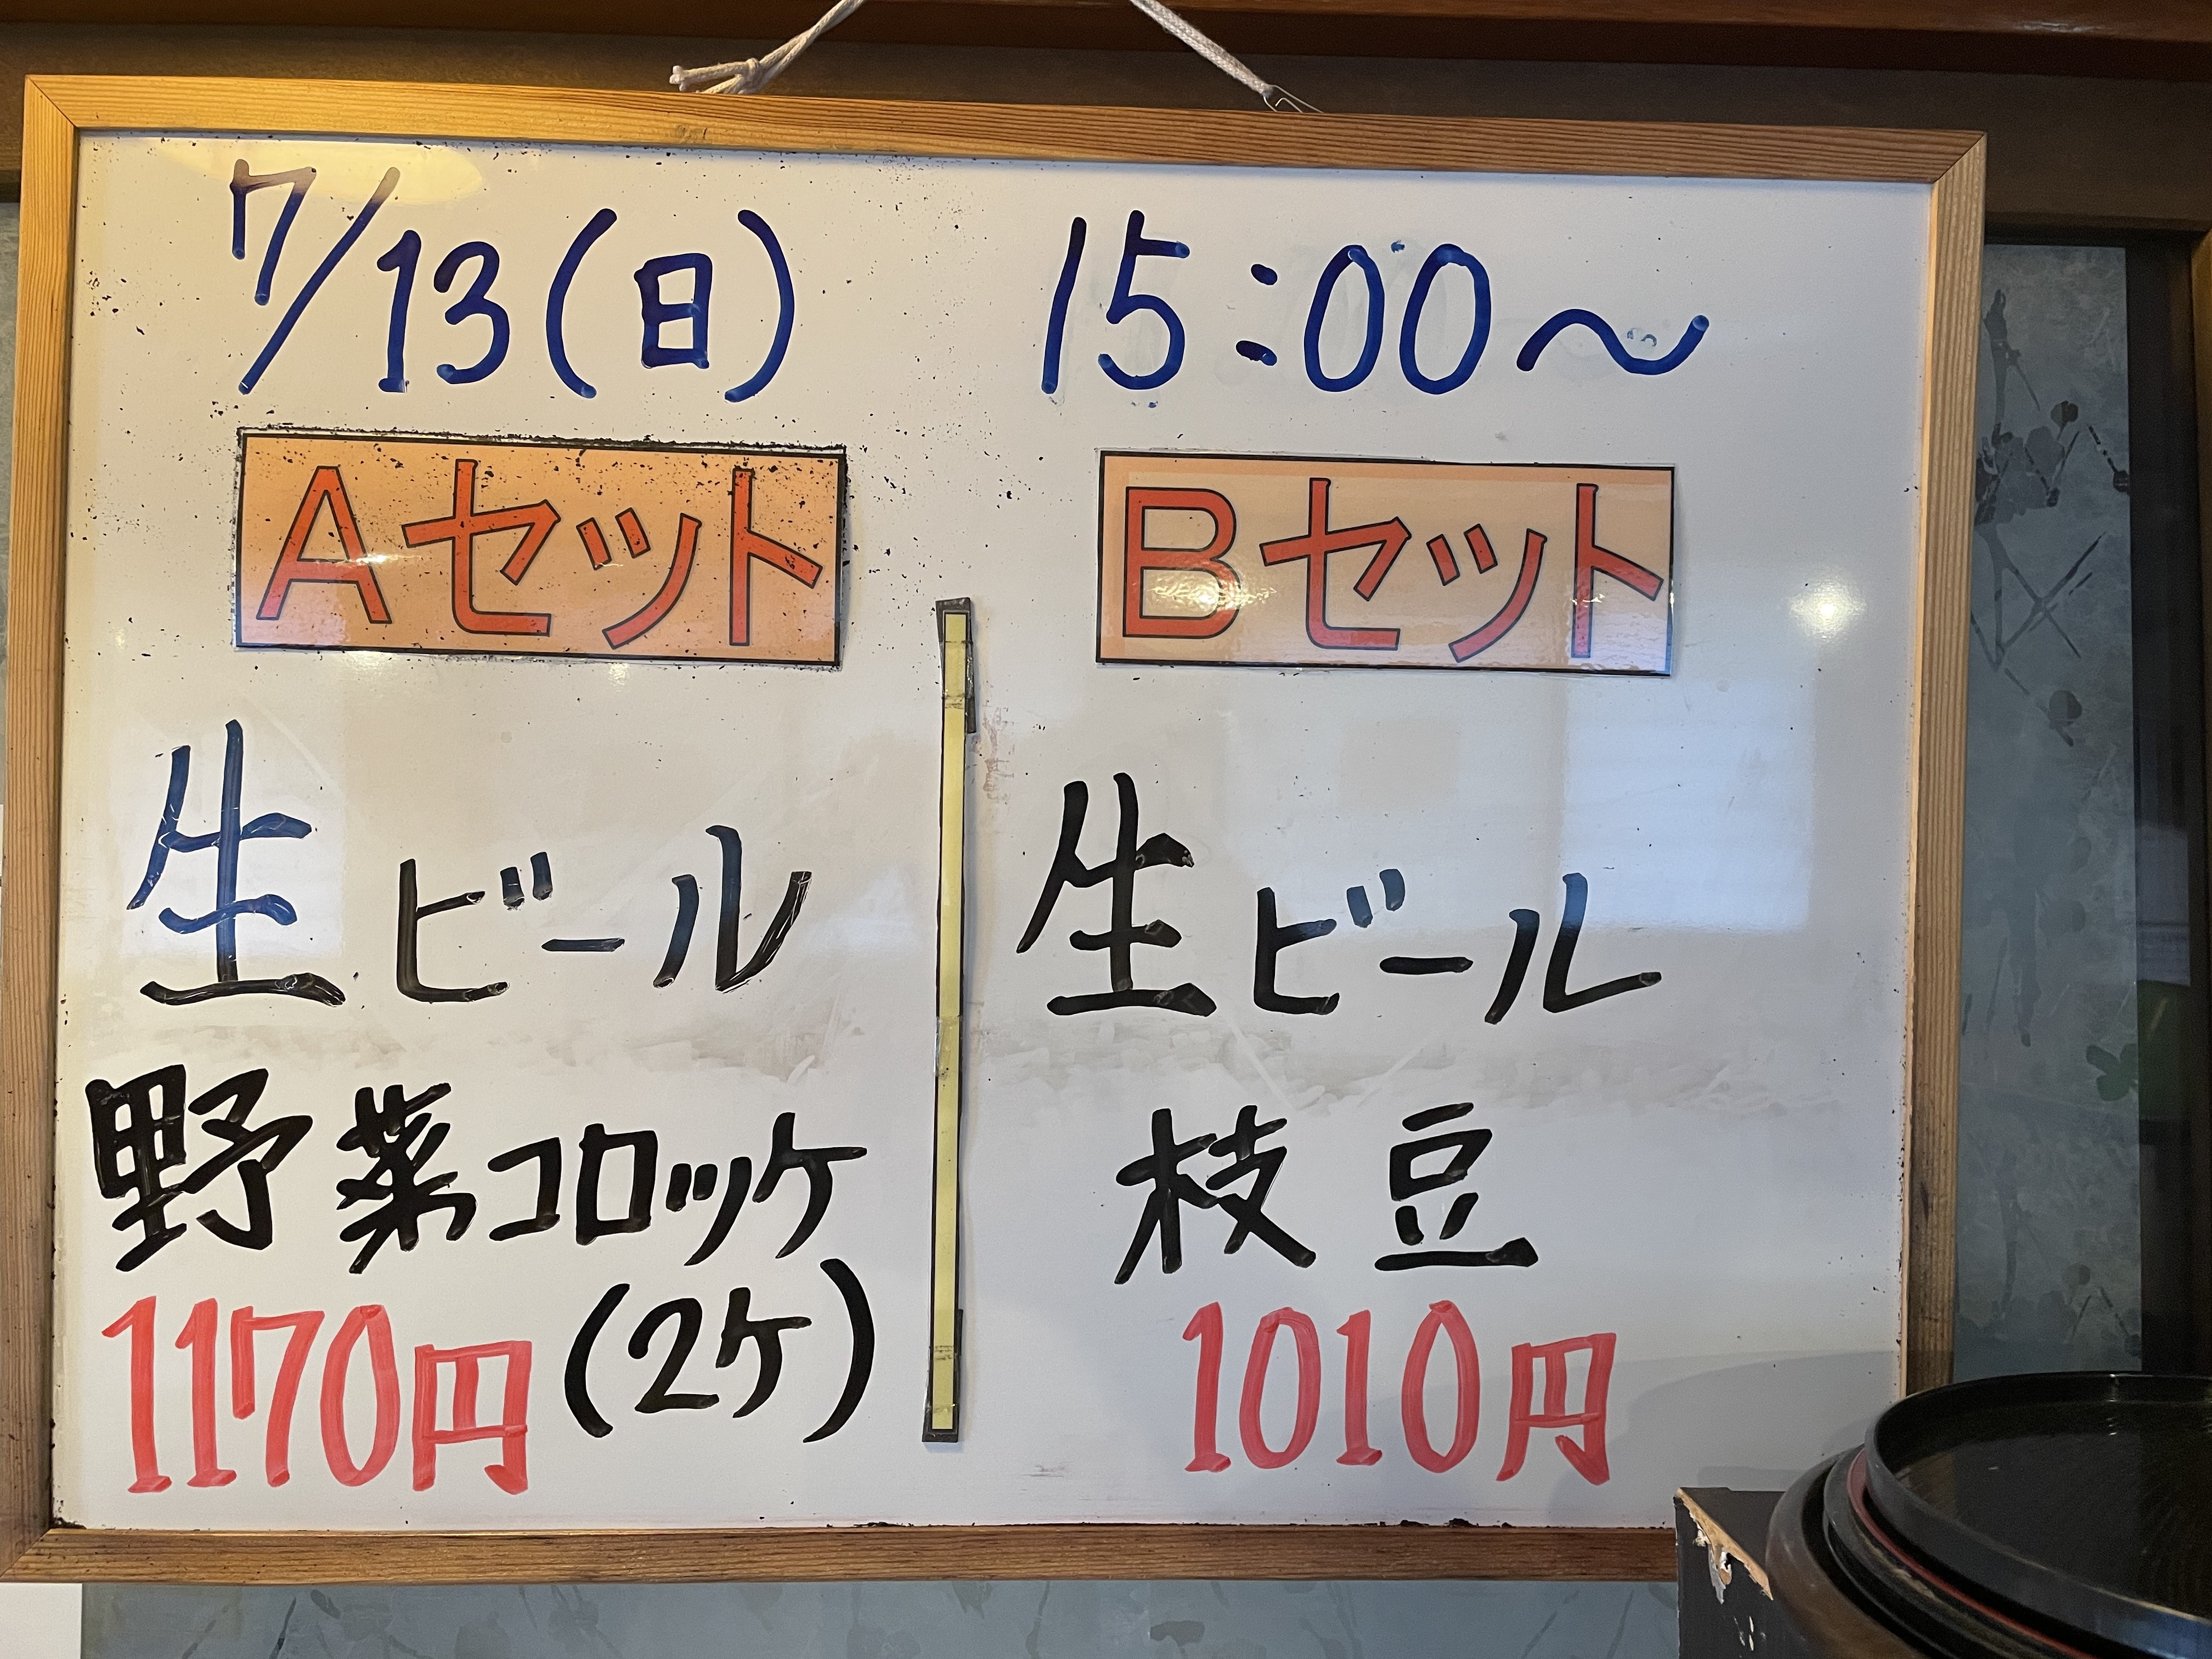 7/13(日) 15:00～
Aセット
生ビール
野菜コロッケ
(2ケ)
1170円
Bセット
生ビール
枝豆
1010円